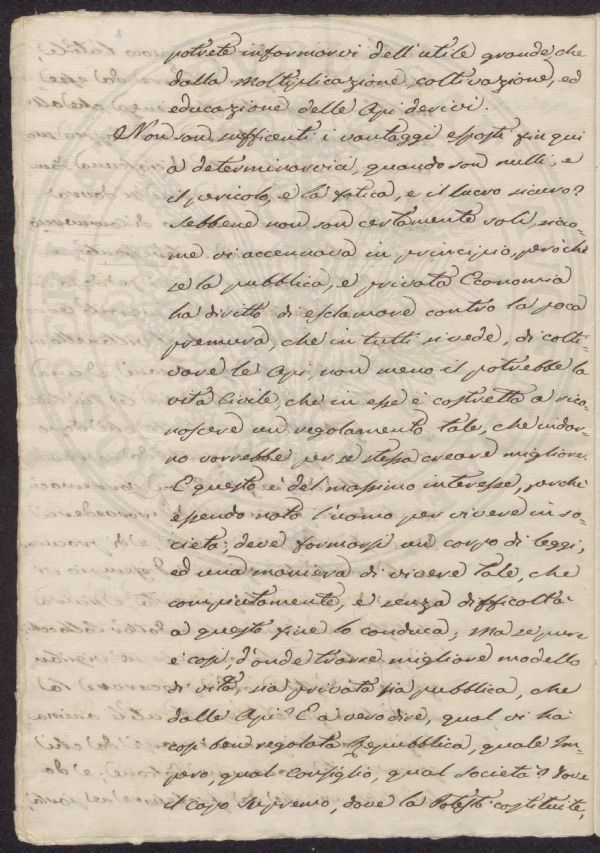 potrete informarvi dell'utile grande, che
dalla moltiplicazione, coltivazione, ed
educazione delle Api derivi.
Non son sufficenti i vantaggi esposti fin qui
a determinarvici, quando son nulli, e
il pericolo, e la fatica, e il lucro sicuro?
Sebbene non son certamente soli, sicco-
me vi accennava in principio, però che
se la pubblica, e privata Economia
ha diritto di esclamare contro la poca
premura, che in tutti si vede, di colti-
vare le Api, non meno il potrebbe la
vita Civile, che in esse è costretta a rico-
noscere un regolamento tale, che indar-
no vorrebbe per se stessa creare migliore.
E questo è del massimo interesse, perchè
essendo nato l'uomo per vivere in so-
cietà, deve formarsi un corpo di leggi,
ed una maniera di vivere tale, che
compiutamente, e senza difficoltà
a questo fine lo conduca; ma se pure
è così, d'onde trarre migliore modello
di vita, sia privata sia pubblica, che
dalle Api? E a vero dire, qual vi ha
così ben regolata Repubblica, quale Im-
pero, qual consiglio, qual società? dove
il capo supremo, dove la Potestà costituite,